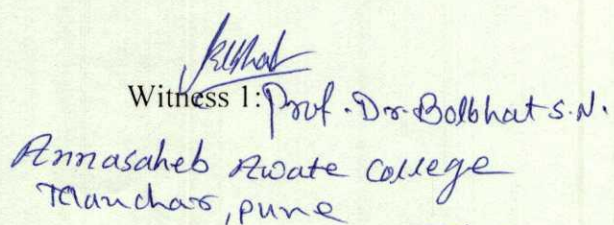 Witness 1: Prof. Dr. Bolbhat S.N.
Annasaheb Awate College
Manchar, Pune